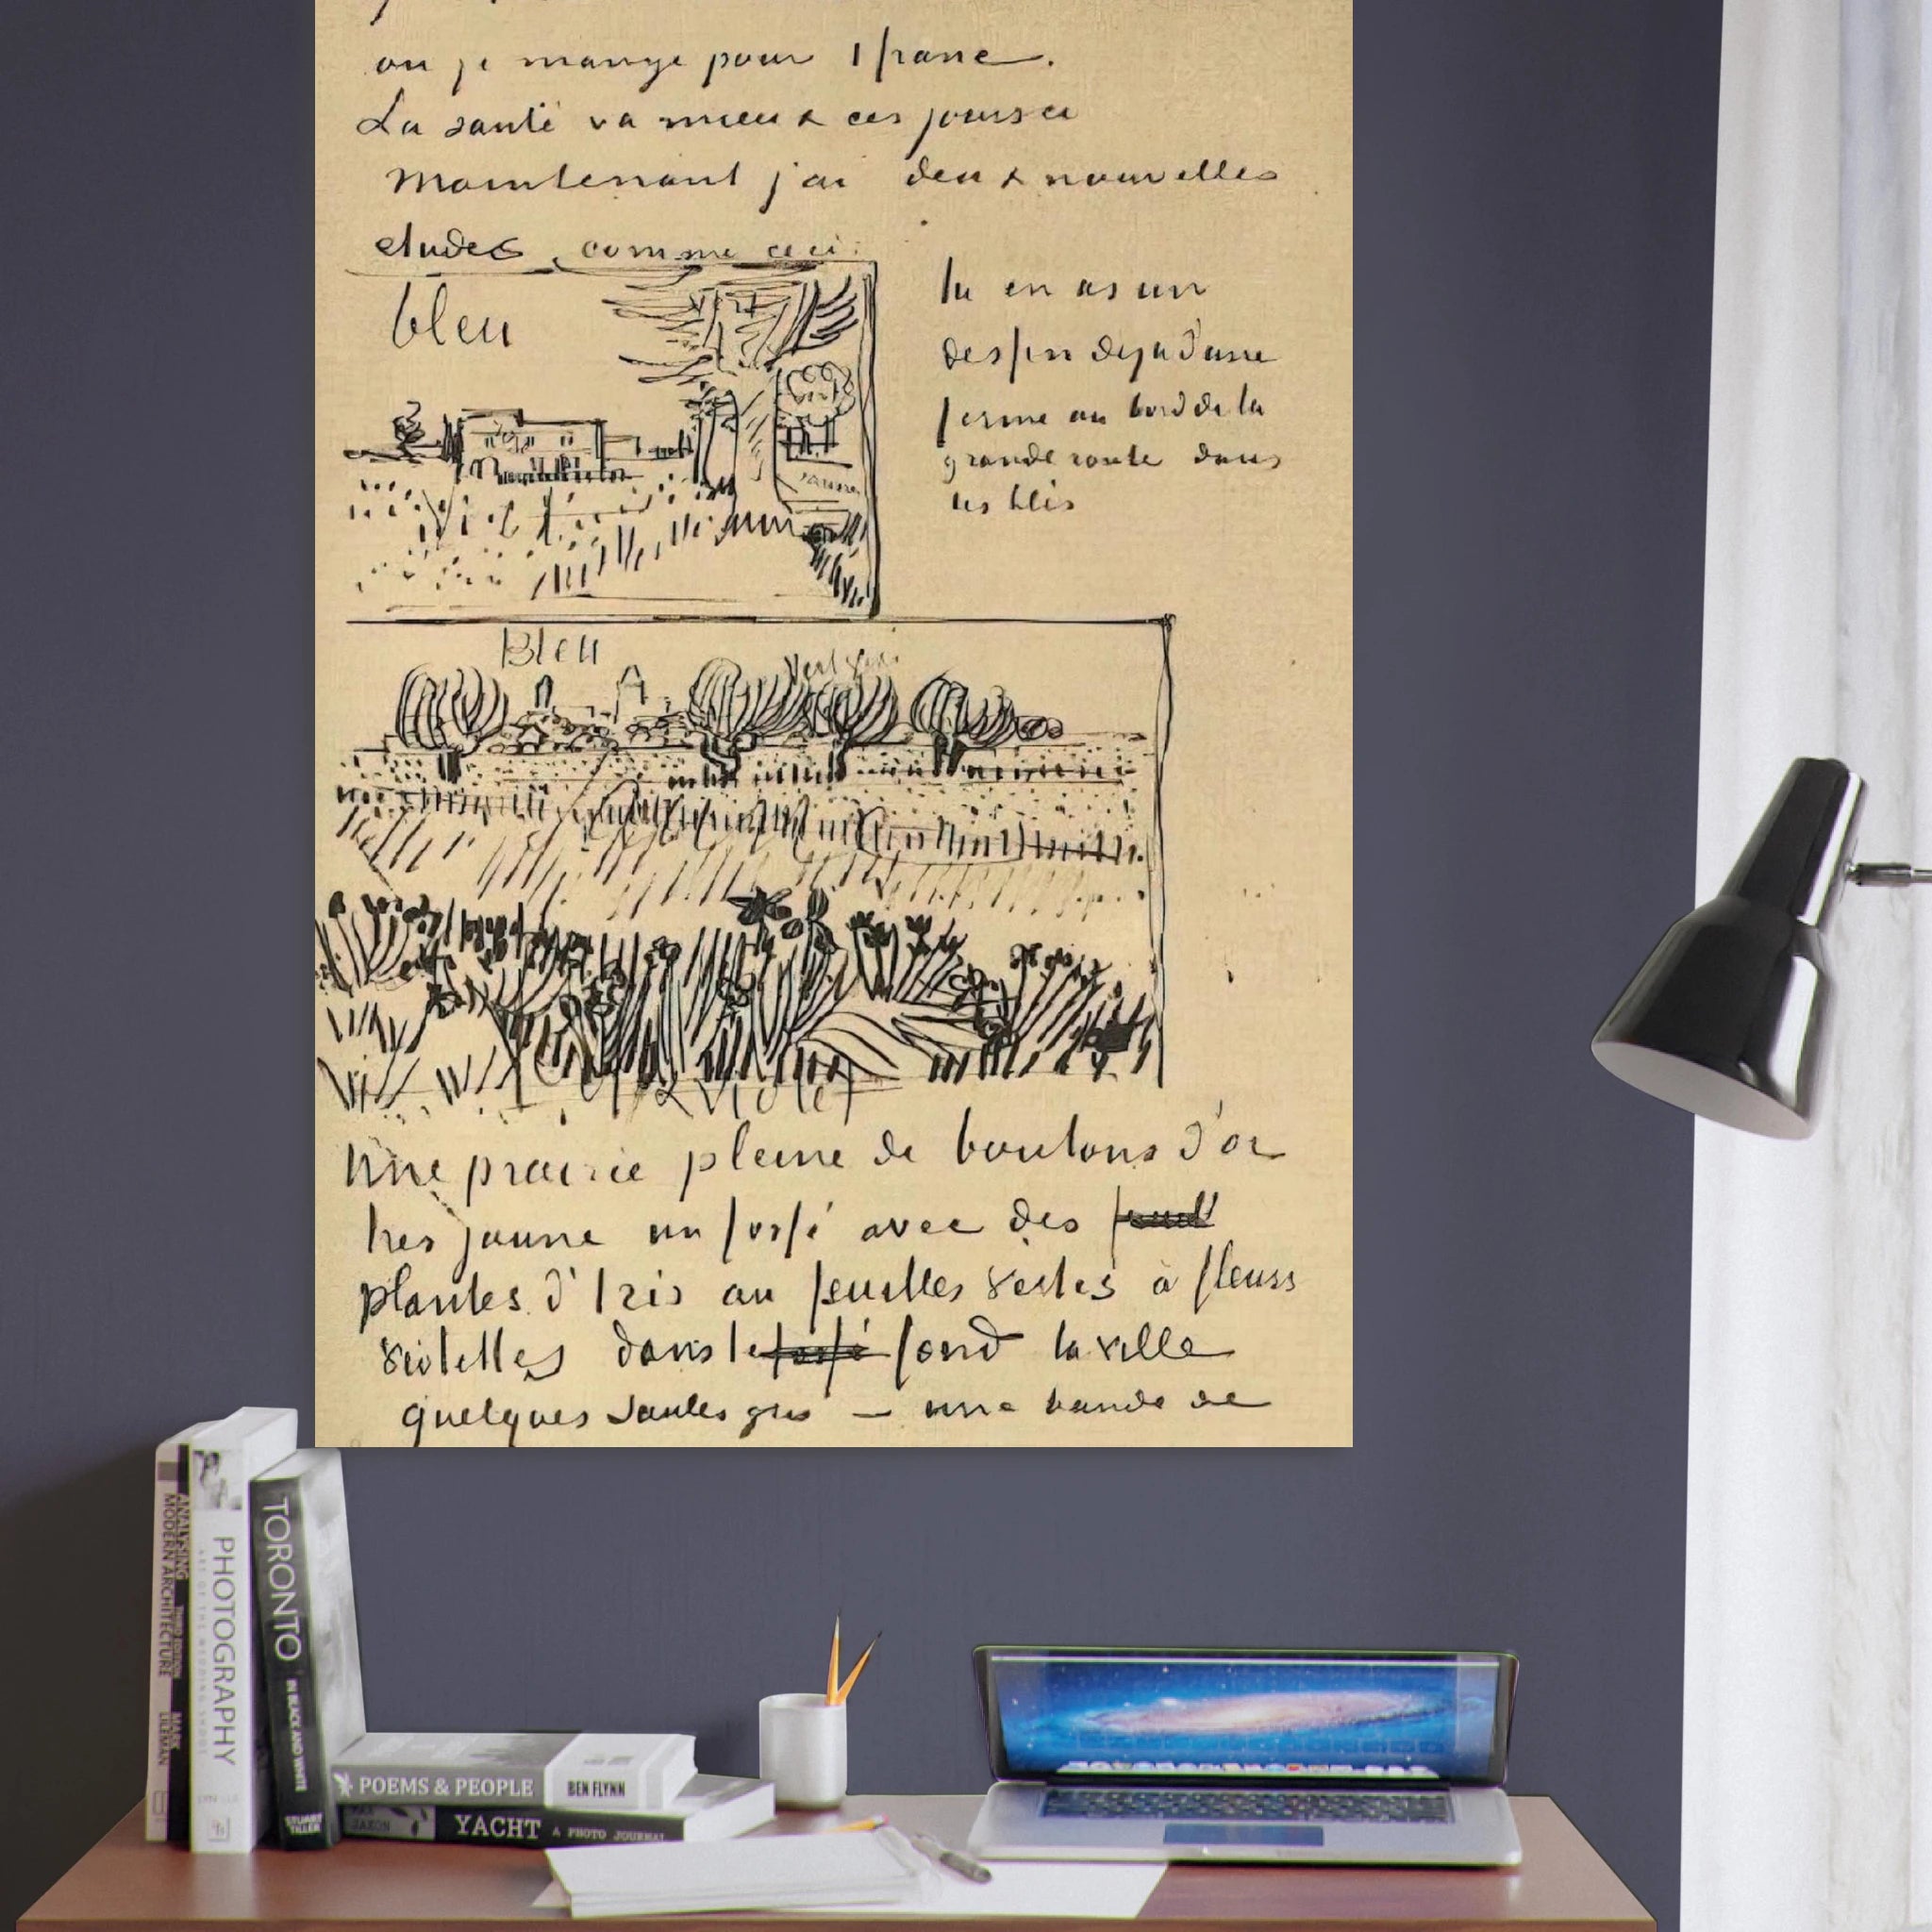 ou je mange pour 1 franc.
La santé va mieux ces jours ci
Maintenant j'ai deux nouvelles
etudes comme ceci:
bleu
vert
jaune
tu en as un
dessin deja d'une
ferme au bord de la
grande route dans
les blés
Bleu
Vert gris
Violet
Une prairie pleine de boutons d'or
tres jaune un fossé avec des
plantes d'Iris au feuilles vertes à fleurs
violettes dans le fossé fond la ville
quelques saules gris – une bande de
ANALYSING
MODERN ARCHITECTURE
THIRD EDITION
MARK
PHOTOGRAPHY
TORONTO
IN BLACK AND WHITE
STUART
TILLER
POEMS & PEOPLE
BEN FLYNN
YACHT A PHOTO JOURNAL